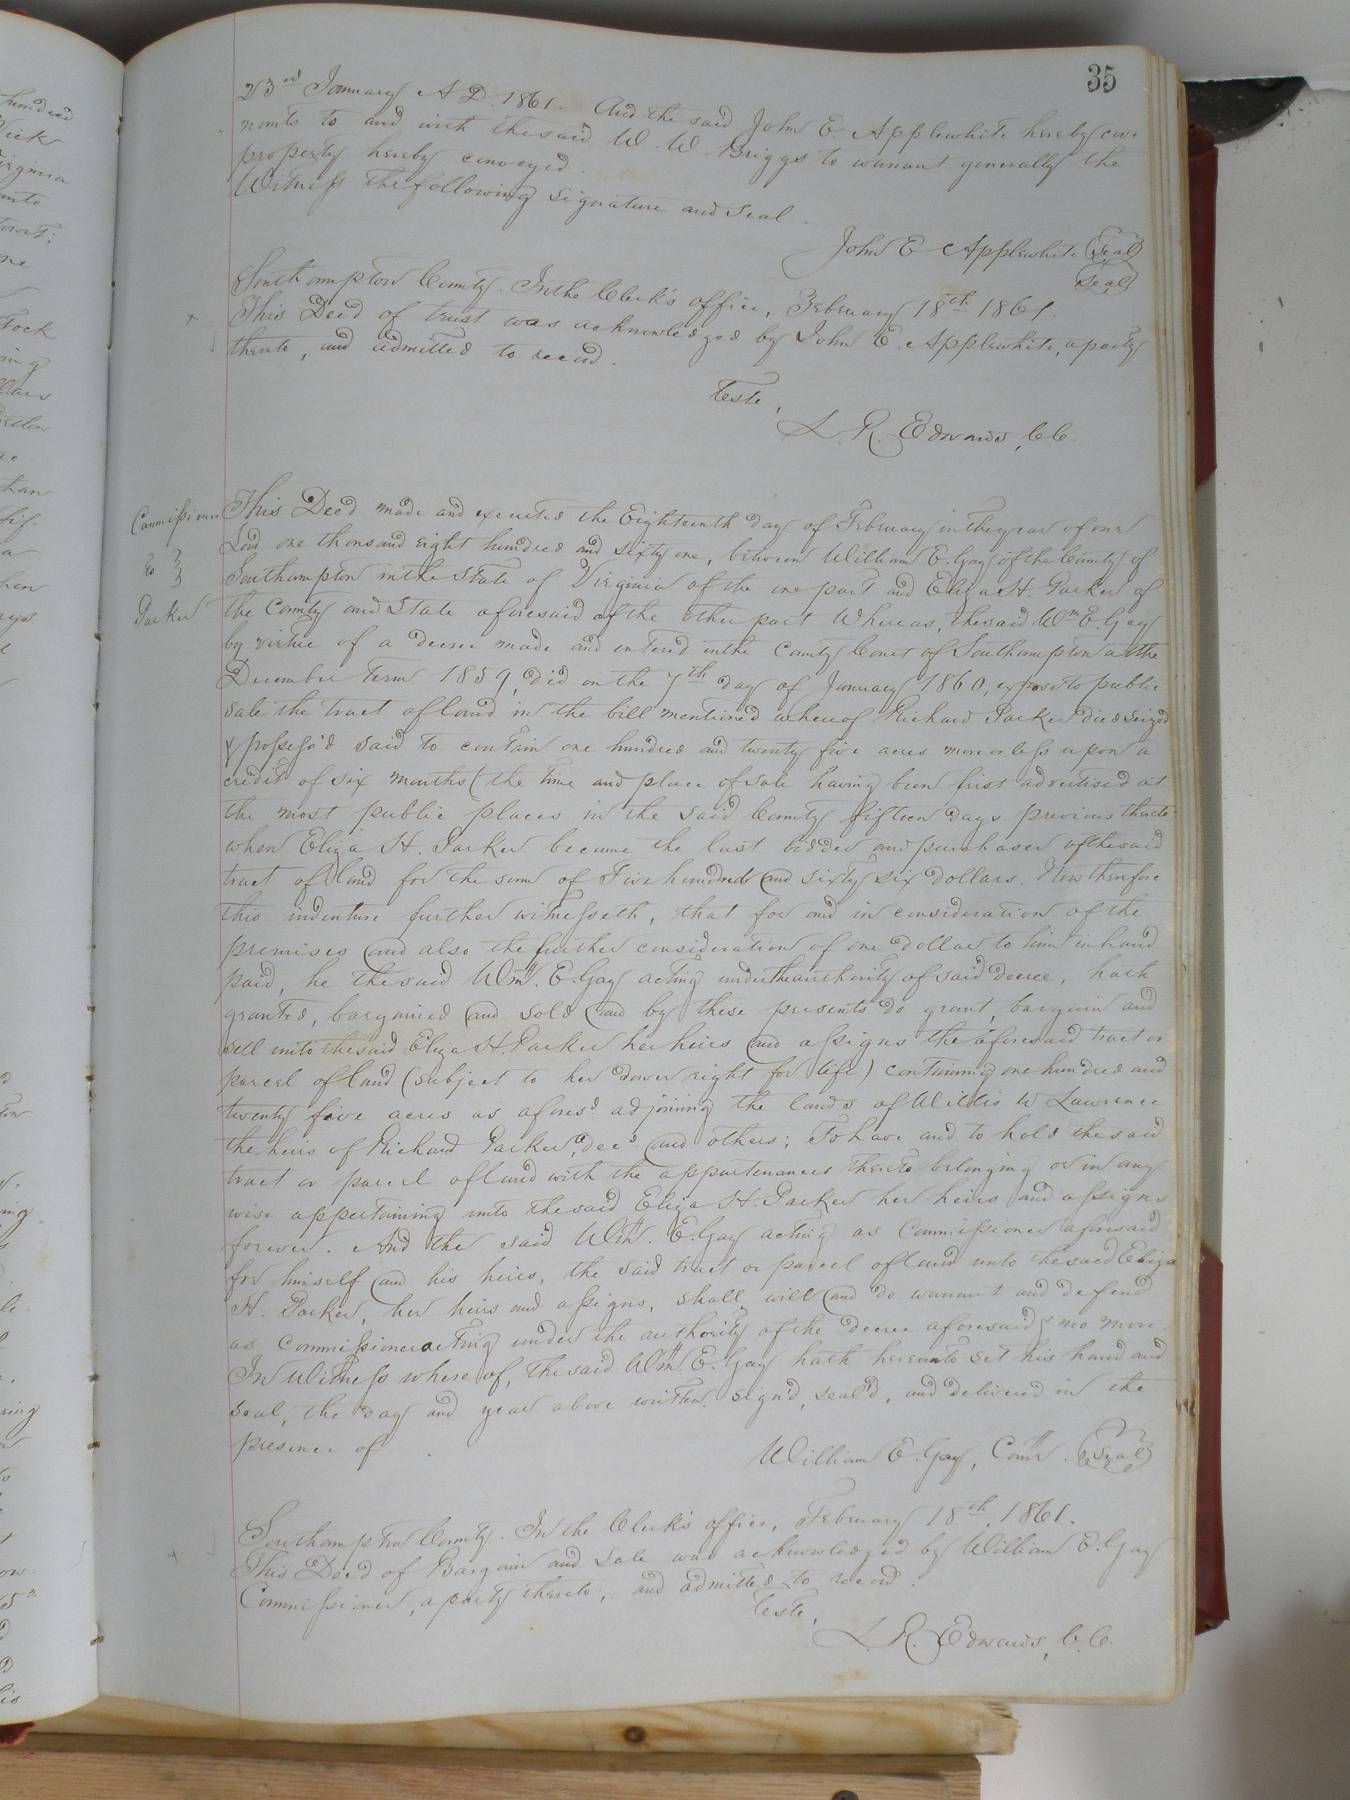 35
23rd January A D. 1861. And the said John E Applewhite hereby cove
nants to and with the said W. W. Briggs to warrant generally the
property hereby conveyed.
Witness the following signature and seal.
John E Applewhite Seal
Seal
Southampton County. In the Clerk's office, February 18th 1861.
This Deed of trust was acknowledged by John E. Applewhite, a party
thereto, and admitted to record.
Teste,
L. R. Edwards, C.C.
Commissioner
to
Parker
This Deed made and executed the Eighteenth day of February in the year of our
Lord one thousand eight hundred and sixty one, between William E. Gay of the County of
Southampton in the State of Virginia of the one part and Eliza H. Parker of
the County and State aforesaid of the other part Whereas, the said Wm E. Gay
by virtue of a decree made and entered in the County Court of Southampton at the
December Term 1859, did on the 7th day of January 1860, expose to public
sale the tract of land in the bill mentioned whereof Richard Parker died seized
& possess'd said to contain one hundred and twenty five acres more or less upon a
credit of six months (the time and place of sale having been first advertised at
the most public places in the said County fifteen days previous thereto
when Eliza H. Parker became the last bidder and purchaser of the said
tract of land for the sum of Five hundred and sixty six dollars. Now therefore
this indenture further witnesseth, that for and in consideration of the
premises and also the further consideration of one dollar to him in hand
paid, he the said Wm. E. Gay acting under the authority of said decree, hath
granted, bargained and sold and by these presents do grant, bargain and
sell unto the said Eliza H. Parker her heirs and assigns the aforesaid tract or
parcel of land (subject to her dower right for life) containing one hundred and
twenty five acres as afores'd adjoining the lands of Willis W Lawrence
the heirs of Richard Parker, dec'd. and others; To have and to hold the said
tract or parcel of land with the appurtenances thereto belonging or in any
wise appertaining unto the said Eliza H. Parker her heirs and assigns
forever. And the said Wm. E. Gay acting as Commissioner aforesaid
for himself and his heirs, the said tract or parcel of land unto the said Eliza
H. Parker, her heirs and assigns, shall will and do warrant and defend
as Commissioner acting under the authority of the decree aforesaid & no more.
In Witness whereof, the said Wm. E. Gay hath hereunto set his hand and
seal, the day and year above written. sign'd, seal'd, and delivered in the
presence of
William E. Gay, Comr. Seal
Southampton County. In the Clerk's office, February 18th, 1861.
This Deed of Bargain and Sale was acknowledged by William E. Gay
Commissioner, a party thereto, and admitted to record.
Teste,
L. R. Edwards, C.C.